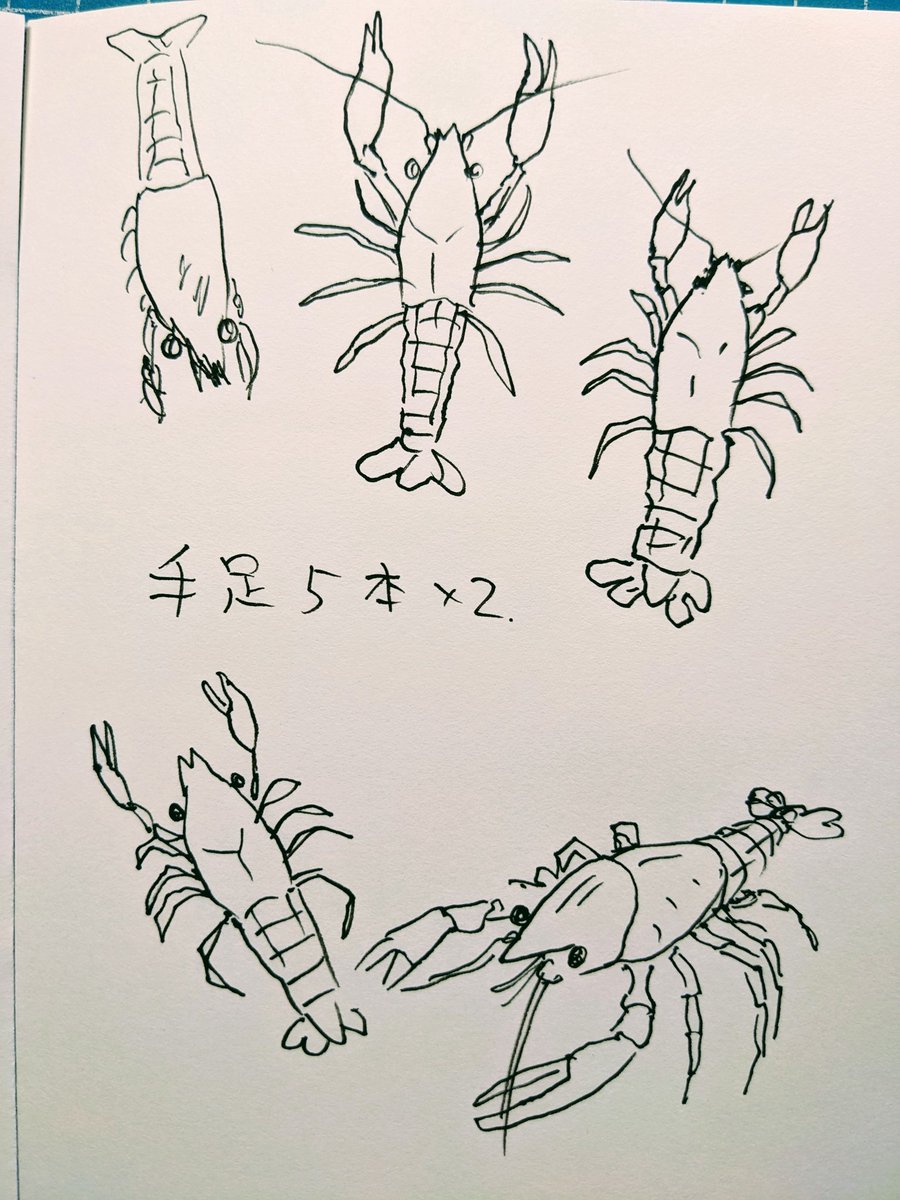 手足5本×2.